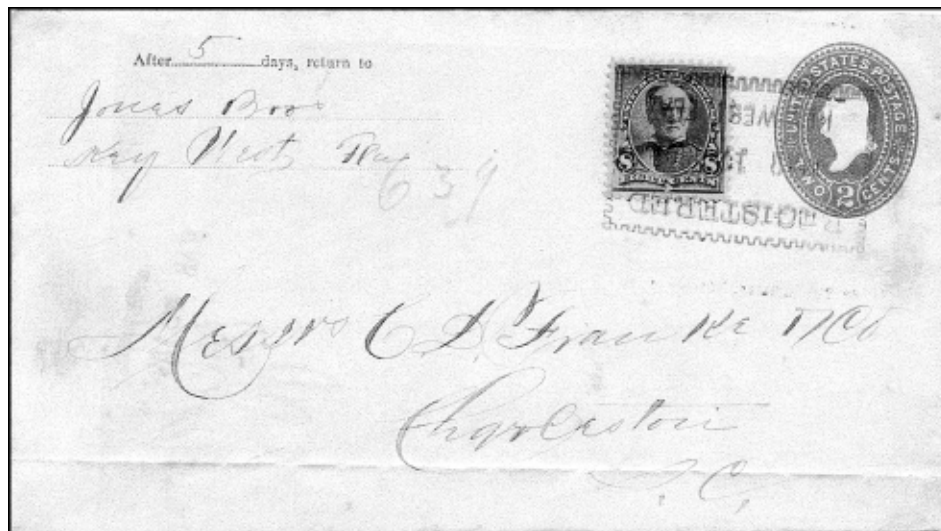 After 5 days, return to
Jonas Bros
Key West, Fla
639
8 8
EIGHT CENTS
UNITED STATES POSTAGE
TWO 2 CENTS
REGISTERED
Messrs C D Franke & Co
Charleston
S.C.